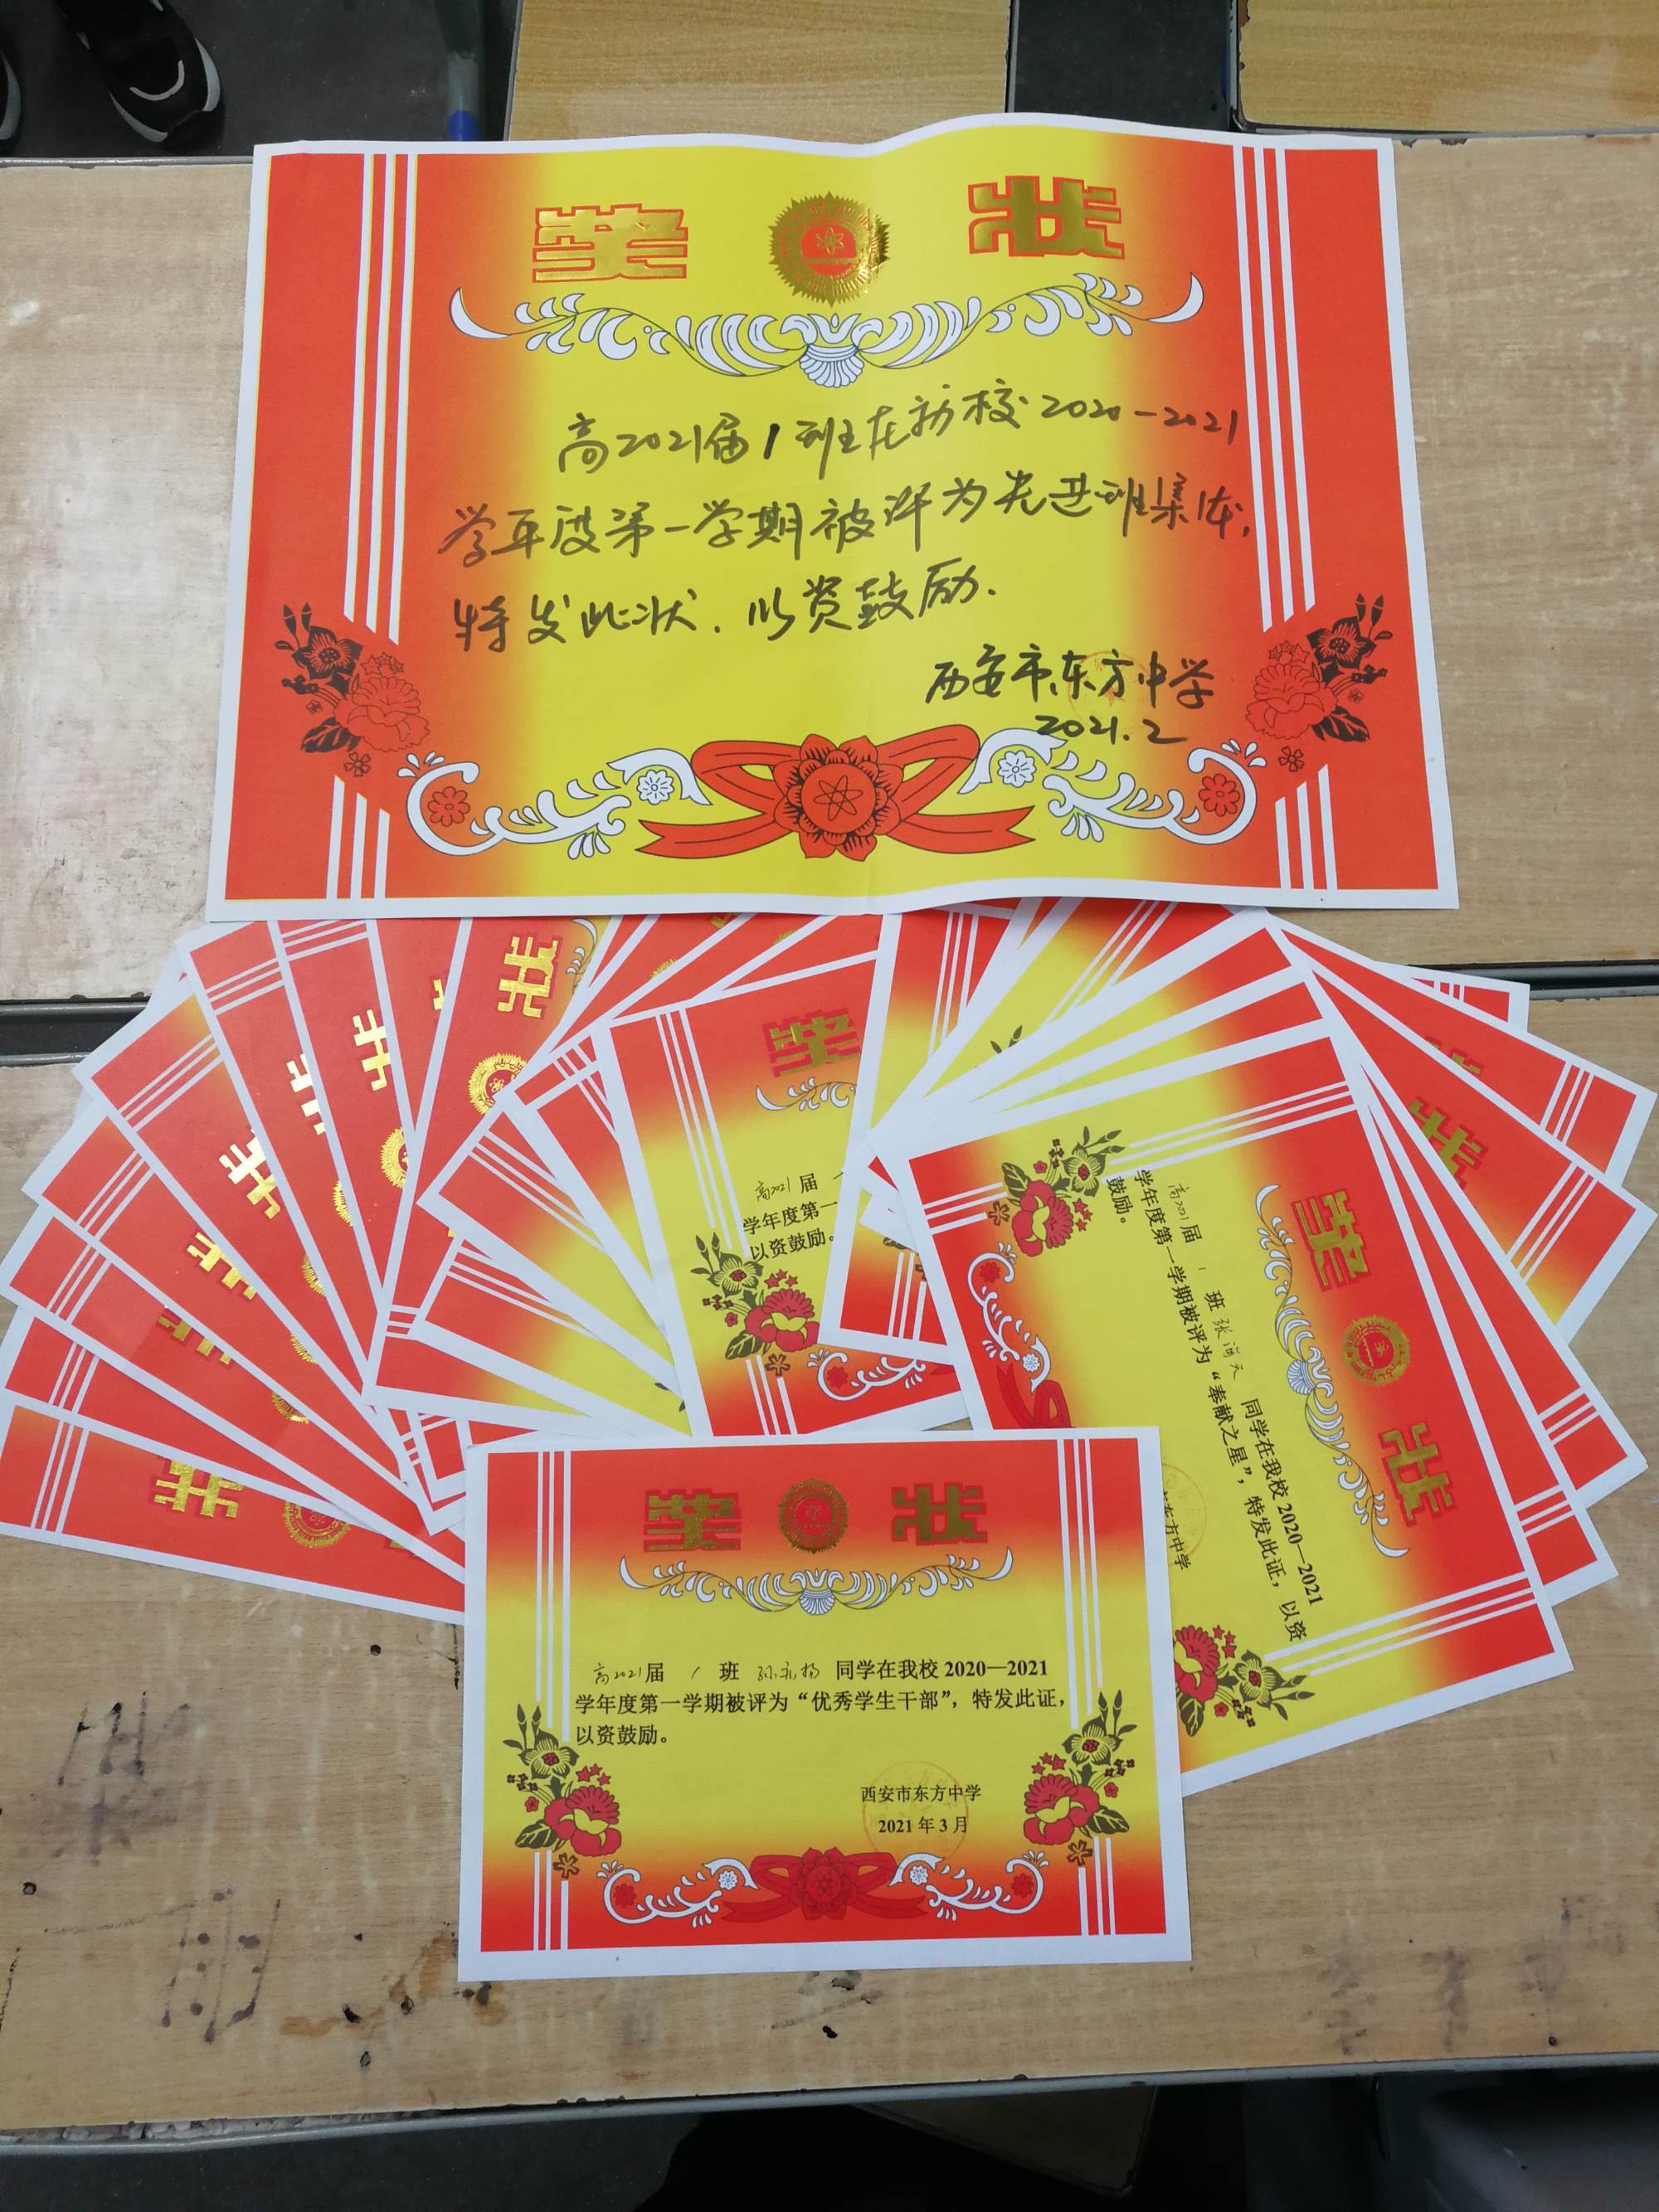 奖 状
高2021届1班在我校2020-2021
学年度第一学期被评为先进班集体,
特发此状.以资鼓励.
西安市东方中学
2021.2
状
奖
高2021届 一
学年度第一
以资鼓励。
奖 状
高2021届 1 班 张润天 同学在我校 2020—2021
学年度第一学期被评为“奉献之星”，特发此证，以资
鼓励。
东方中学
奖 状
高2021届 1 班 同学在我校 2020—2021
学年度第一学期被评为“优秀学生干部”，特发此证，
以资鼓励。
西安市东方中学
2021 年 3 月